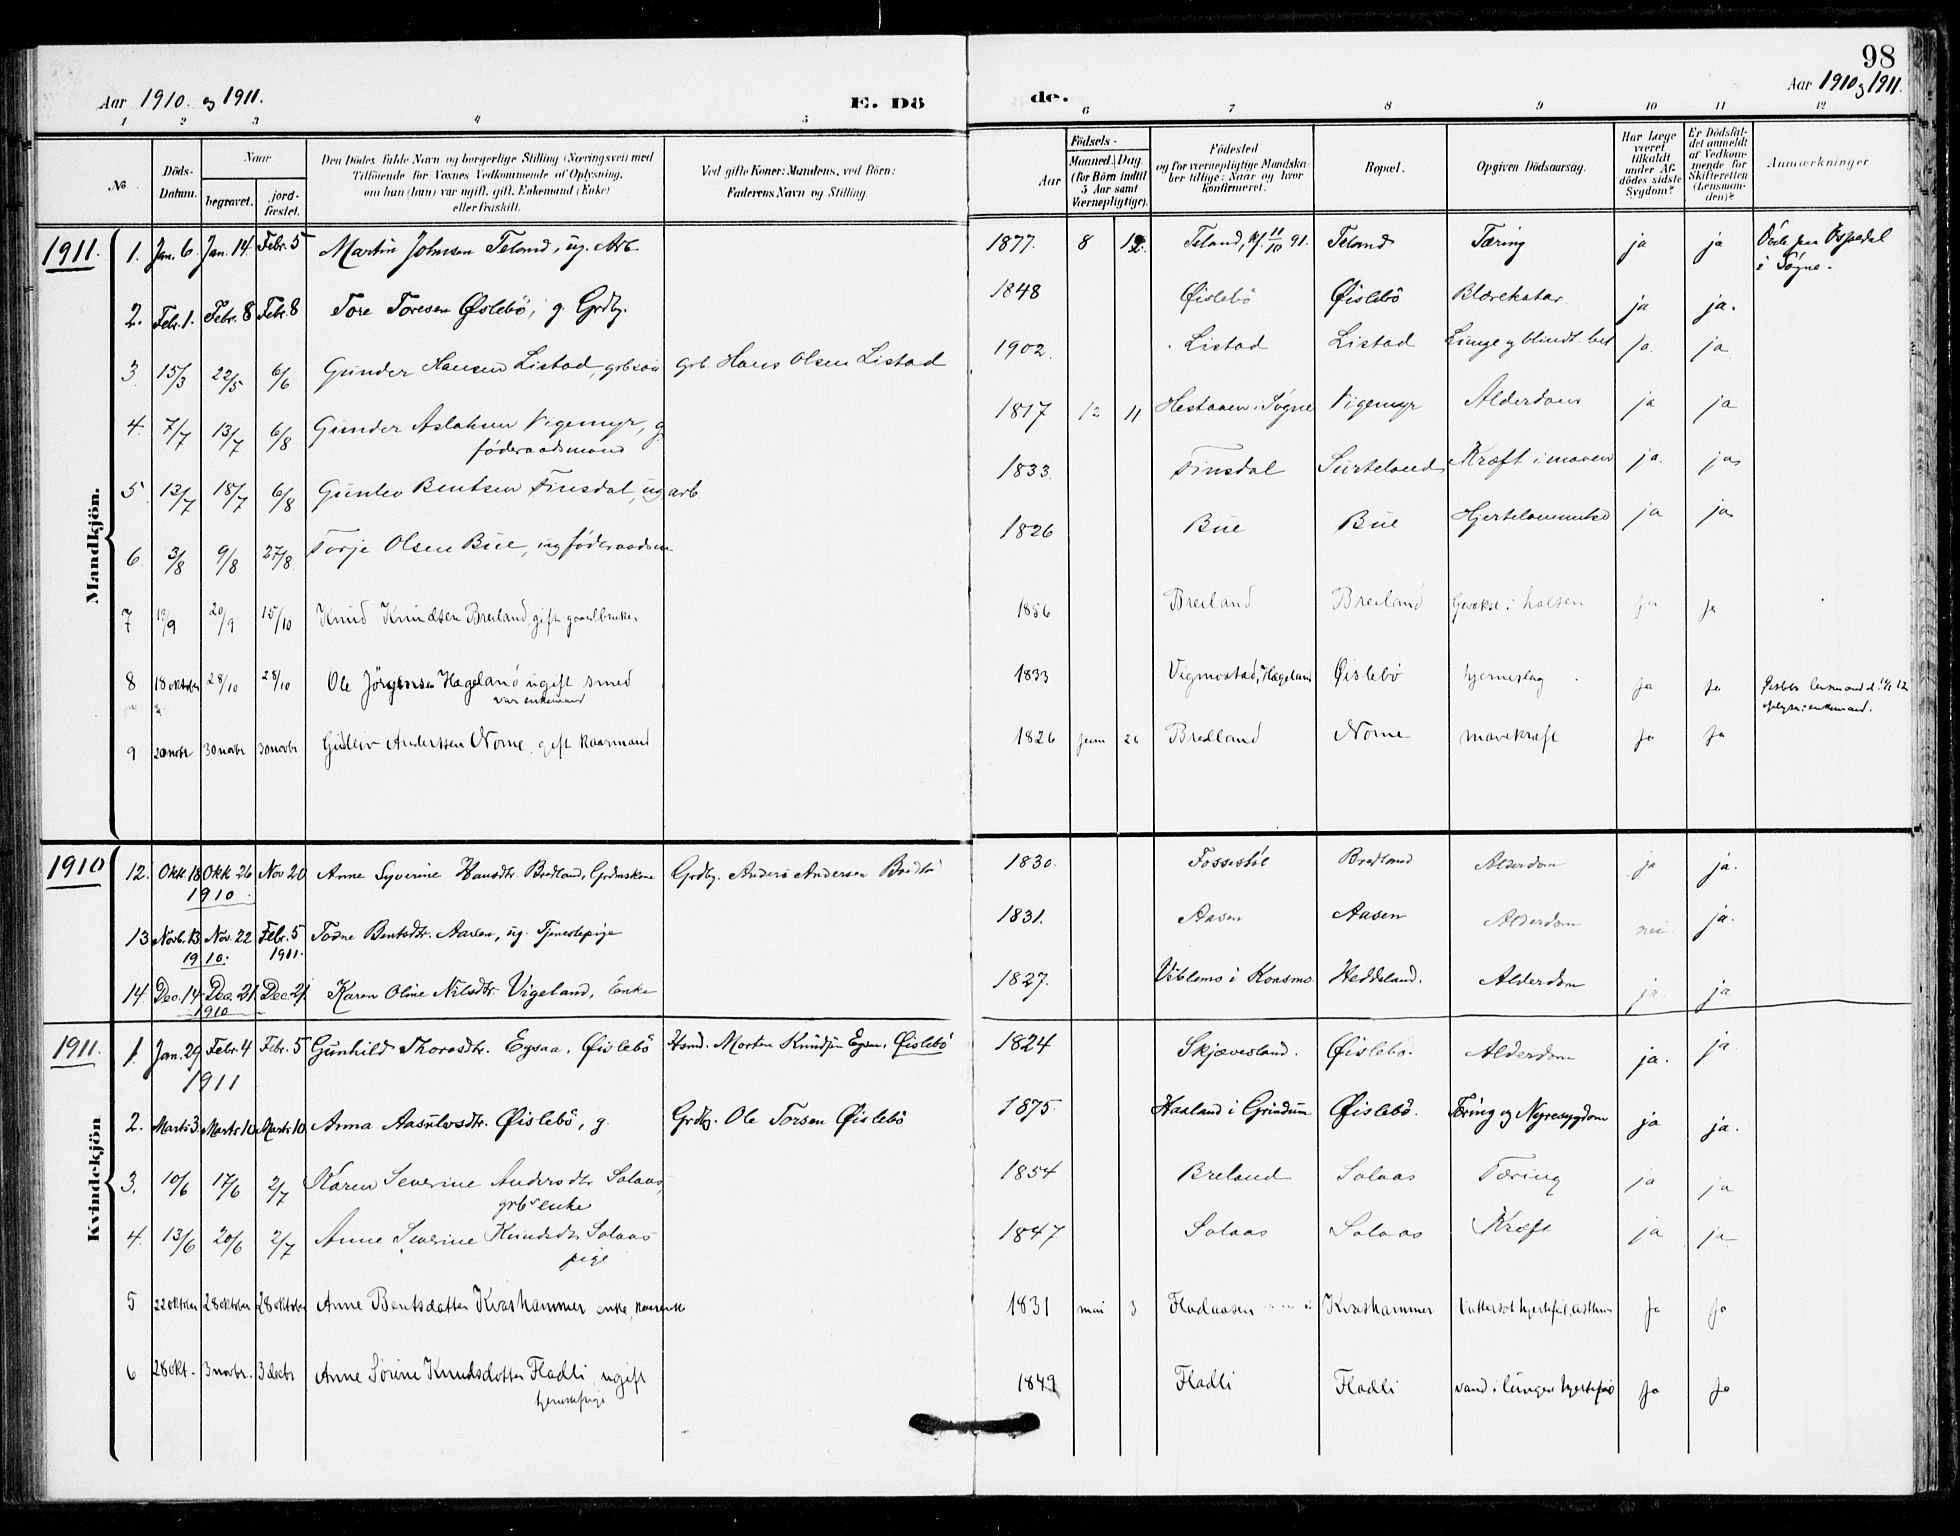 98
Aar 1910 og 1911. E. Dö de. Aar 1910 og 1911.
1 2 3 4 5 6 7 8 9 10 11 12
No Döds-Datum. Naar begravet. jordfæstet. Den Dödes fulde Navn og borgerlige Stilling (Næringsvei) med Tilföiende for Voxnes Vedkommende af Oplysning, om han (hun) var ugift, gift, Enkemand (Enke) eller fraskilt. Ved gifte Koner: Mandens, ved Börn: Faderens Navn og Stilling. Födsels- Aar Maaned. Dag. (for Börn indtil 5 Aar samt Værnepligtige). Födested og for værnepligtige Mandskaber tillige: Naar og hvor konfirmeret. Bopæl. Opgiven Dödsaarsag. Har Læge været tilkaldt under Afdödes sidste Sygdom? Er Dödsfaldet anmeldt af Vedkommende for Skifteretten (Lensmanden)? Anmærkninger
Mandkjön.
1911. 1. Jan. 6. Jan. 14. Febr. 5 Martin Johnsen Teland, ug. Arb. 1877. 8 12. Teland, kf. 11/10 91. Teland Tæring ja ja Döde paa Ospedal i Søgne.
2. Febr. 1. Febr. 8 Febr. 8 Tore Toresen Øislebö, g. Grdbg. 1848 Øislebö Øislebö Blærekatar. ja ja.
3. 15/3 22/5 6/6 Gunder Hansen Listad, grbsøn grb. Hans Olsen Listad 1902. Listad Listad Lunge og blindt. bet ja. ja
4. 7/7 13/7 6/8 Gunder Aslaksen Vigemyr, g føderaadsmand 1817 12 11 Hestaaen i Søgne Vigemyr Alderdom ja ja
5. 12/7 18/7 6/8 Gunlev Bentsen Finsdal, ug arb. 1833. Finsdal Surteland Kræft i maven ja. ja
6. 3/8 9/8 27/8 Torje Olsen Bue, ug føderaadsm 1826 Bue Bue Hjertelammelse ja ja
7 13/9 20/9 15/10 Knud Knudsen Breiland, gift gaardbruker 1856 Breiland Breiland Gevækst i halsen ja ja
8 18 oktober 28/10 28/10 Ole Jörgensen Hægeland ugift smed
var enkemand 1833 Vigmostad, Hægeland Øislebö hjerneslag ja ja Øislebö lensmand
oplyser: enkemand.
9 20 novbr 30 novbr 30 novbr Gunlev Anderssen Nome, gift kaarmand 1826 juni 26 Bredland Nome mavekræft ja ja
Kvindekjön
1910 12. Okt. 18. Okt. 26 Nov 20 Anne Syverine Hansdtr. Bredland, Grdmskone Grdbg. Anders Andersen Bredla 1830. Fossestöl Bredland Alderdom ja ja.
1910
13 Novb. 13 Nov. 22 Febr. 5 Todne Bentsdtr. Aasen, ug. Tjenestepige 1831. Aasen Aasen Alderdom nei ja.
1910. 1911.
14. Dec. 14. Dec. 21. Dec. 21. Karen Oline Nilsdtr. Vigeland, Enke 1827. Viblemo i Konsmo Heddeland. Alderdom ja. ja
1910
1911. 1. Jan. 29 Febr. 4 Febr. 5 Gunhild Thorsdtr. Eysaa, Øislebö Hsmd. Morten Knudsen Eysaa, Øislebö 1824 Skjævesland. Øislebö. Alderdom ja. ja.
1911
2. Marts 3. Marts 10 Marts 10 Anna Aasulvsdtr. Øislebö, g. Grdbg. Ole Torsen Øislebö 1875. Haaland i Grindum Øislebö. Tæring og Nyresygdom ja ja.
3. 10/6 17/6 2/7 Karen Severine Andersdtr Solaas,
grbs enke 1854 Breland Solaas Tæring ja ja
4. 13/6 20/6 2/7 Anne Severine Knudsdtr Solaas
pige 1847 Solaas Solaas Kræft ja ja
5 22 oktober 28 oktober 28 oktober Anne Bentsdatter Kvashammer enke, kaarenke 1831 mai 3 Fladaasen Kvashammer Vattersot hjertefeil, asthma ja ja
6 28 okt. 3 novbr. 3 decbr Anne Sörine Knudsdatter Fladli, ugift
tjenestepige 1849 Fladli Fladli vand i lungen hjertefeil ja ja